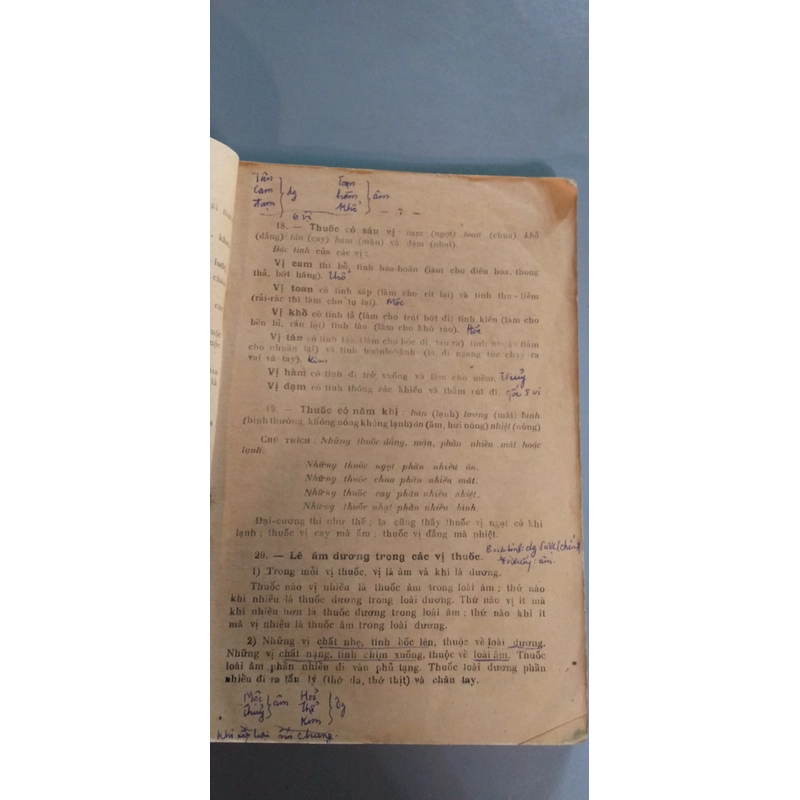 Tân
Cam } dg
Đạm
Toan
hàm } âm
khổ
6 vị
18. — Thuốc có sáu vị : cam (ngọt) toan (chua) khổ
(đắng) tân (cay) ham (mặn) và đạm (nhạt).
Đặc tính của các vị :
Vị cam thì bổ, tính hòa-hoãn (làm cho điều hòa, thong
thả, bớt hăng). Thổ
Vị toan có tính sáp (làm cho rít lại) và tính thu-liễm
(rải-rác thì làm cho tụ lại). Mộc
Vị khổ có tính tả (làm cho trút bớt đi) tính kiên (làm cho
bền bỉ, rắn lại) tính táo (làm cho khô ráo). Hỏa
Vị tân có tính tán (làm cho bốc đi, tan ra) tính nhuận (làm
cho nhuần lại) và tính hoành-hành (là đi ngang tức chạy ra
vai và tay). Kim
Vị hàm có tính đi trở xuống và làm cho mềm. Thuỷ
Vị đạm có tính thông các khiếu và thẩm rút đi. gốc 5 vị
19. — Thuốc có năm khí : hàn (lạnh) lương (mát) bình
(bình thường, không nóng không lạnh) ôn (ấm, hơi nóng) nhiệt (nóng)
CHÚ THÍCH : Những thuốc đắng, mặn, phần nhiều mát hoặc
lạnh.
Những thuốc ngọt phần nhiều ôn.
Những thuốc chua phần nhiều mát.
Những thuốc cay phần nhiều nhiệt.
Những thuốc nhạt phần nhiều bình.
Đại-cương thì như thế ; ta cũng thấy thuốc vị ngọt có khi
lạnh ; thuốc vị cay mà ấm ; thuốc vị đắng mà nhiệt.
20. — Lẽ âm dương trong các vị thuốc.
1) Trong mỗi vị thuốc, vị là âm và khí là dương.
Thuốc nào vị nhiều là thuốc âm trong loài âm ; thứ nào
khí nhiều là thuốc dương trong loài dương. Thứ nào vị ít mà
khí nhiều hơn là thuốc dương trong loài âm ; thứ nào khí ít
mà vị nhiều là thuốc âm trong loài dương.
2) Những vị chất nhẹ, tính bốc lên, thuộc về loài dương.
Những vị chất nặng, tính chìm xuống, thuộc về loài âm. Thuốc
loài âm phần nhiều đi vào phủ tạng. Thuốc loài dương phần
nhiều đi ra tấu lý (thớ da, thớ thịt) và chân tay.
Mộc
Thuỷ } âm
Hoả
Thổ } dg
Kim